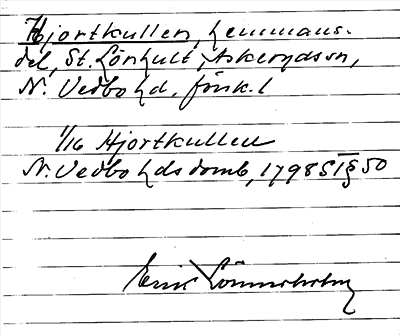 Hjortkullen, hemmans-
del, St. Lönhult, Askerydssn,
N. Vedbo hd. Jönk. l
1/16 Hjortkullen
N. Vedbo hds domb, 1798 ST § 50
Erik Lönnerholm